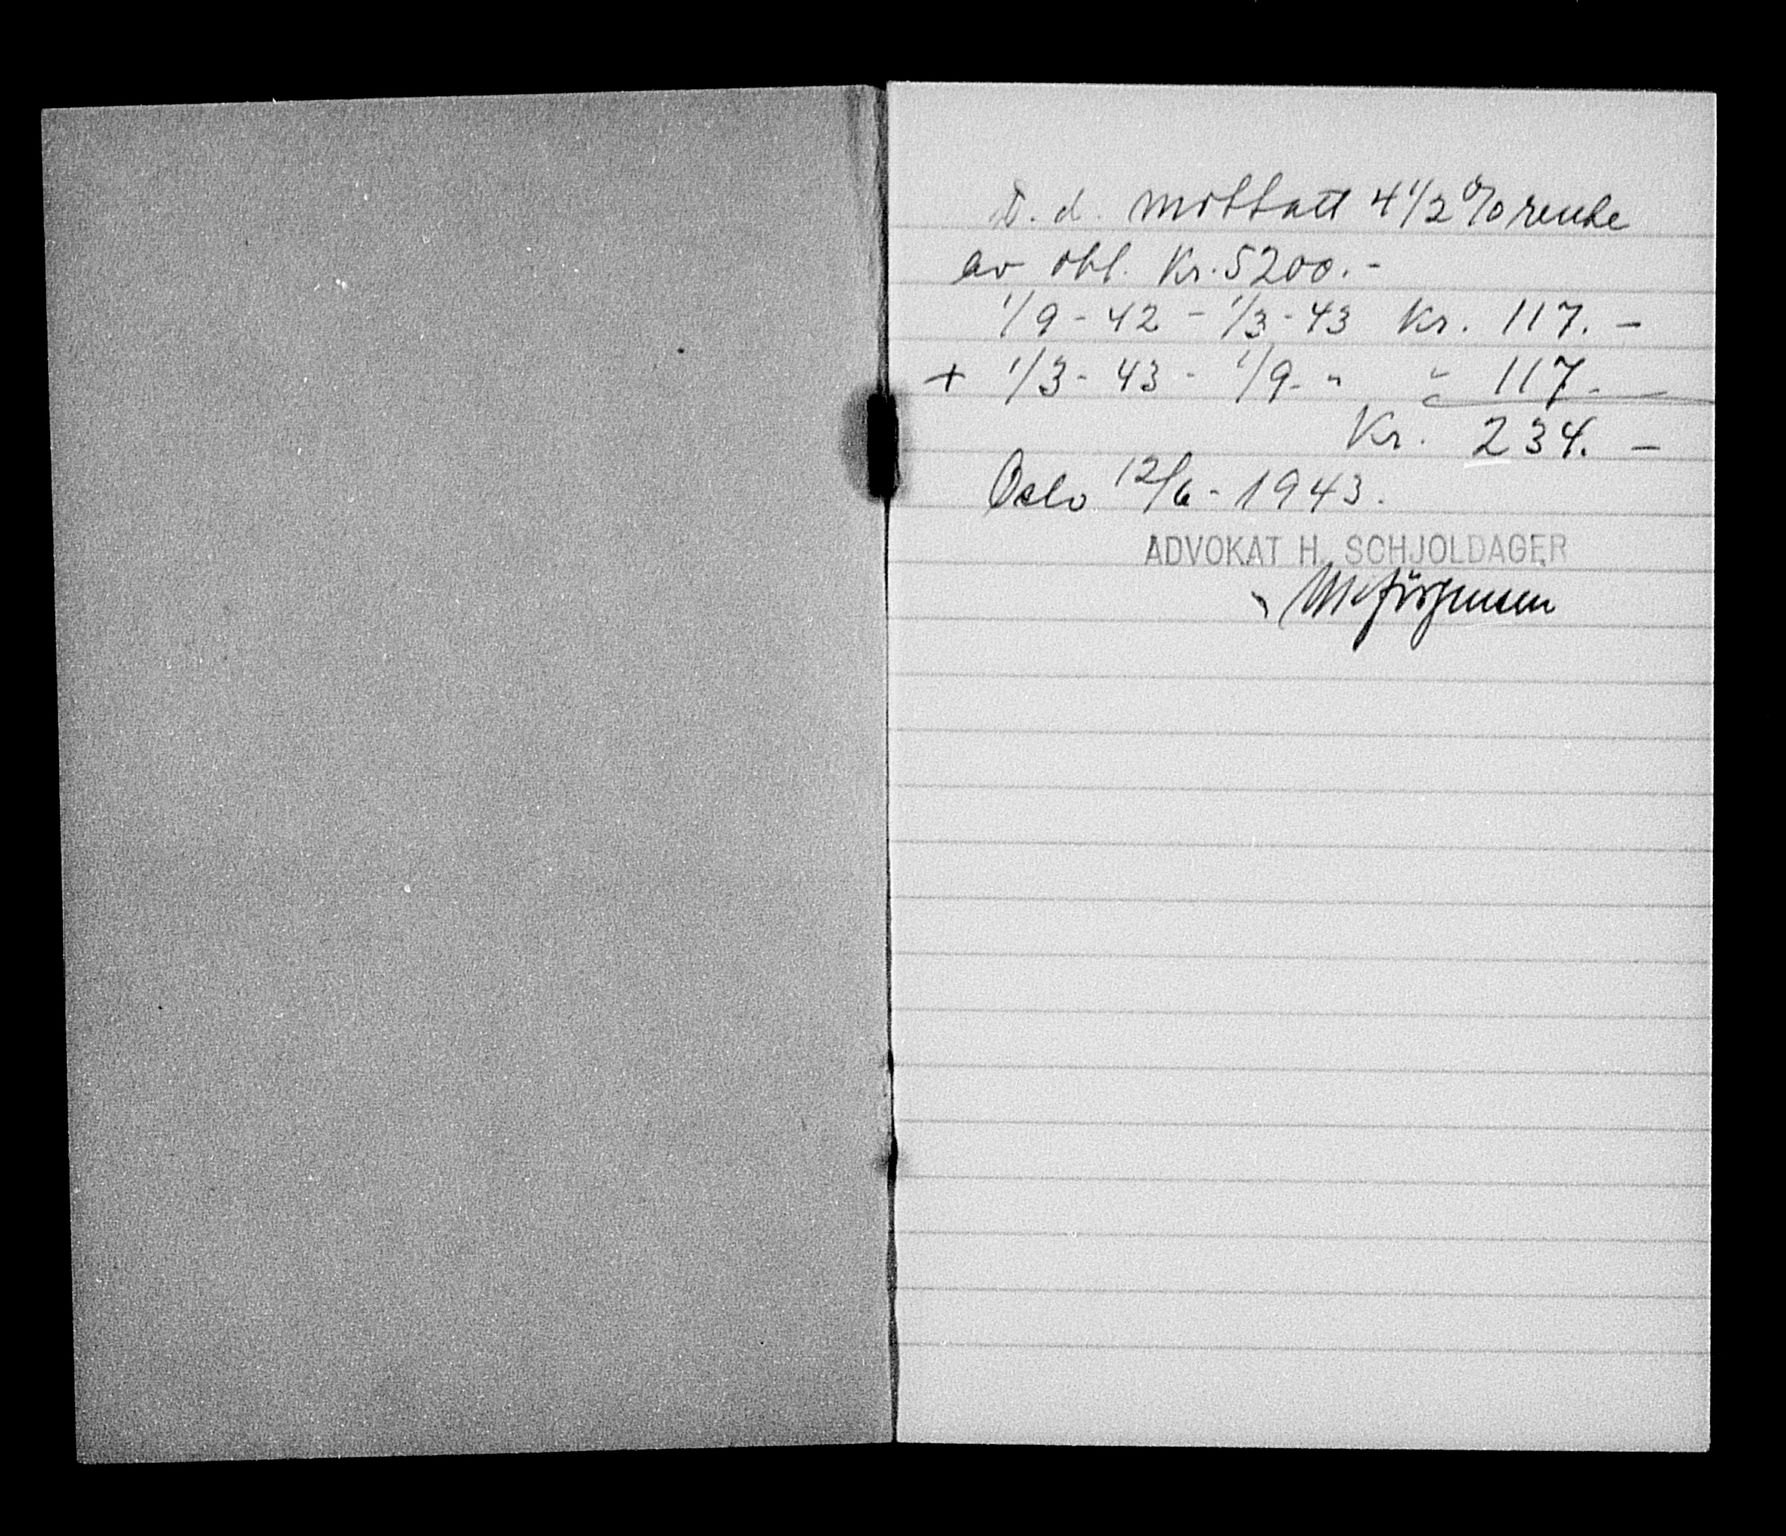 D. d. mottatt 4 1/2 % rente
av obl. Kr. 5200.-
1/9 - 42 - 1/3 - 43 Kr. 117. -
+ 1/3 - 43 - 1/9 - " " 117. -
Kr. 234. -
Oslo 12/6 - 1943.
ADVOKAT H. SCHJOLDAGER
Jørgensen